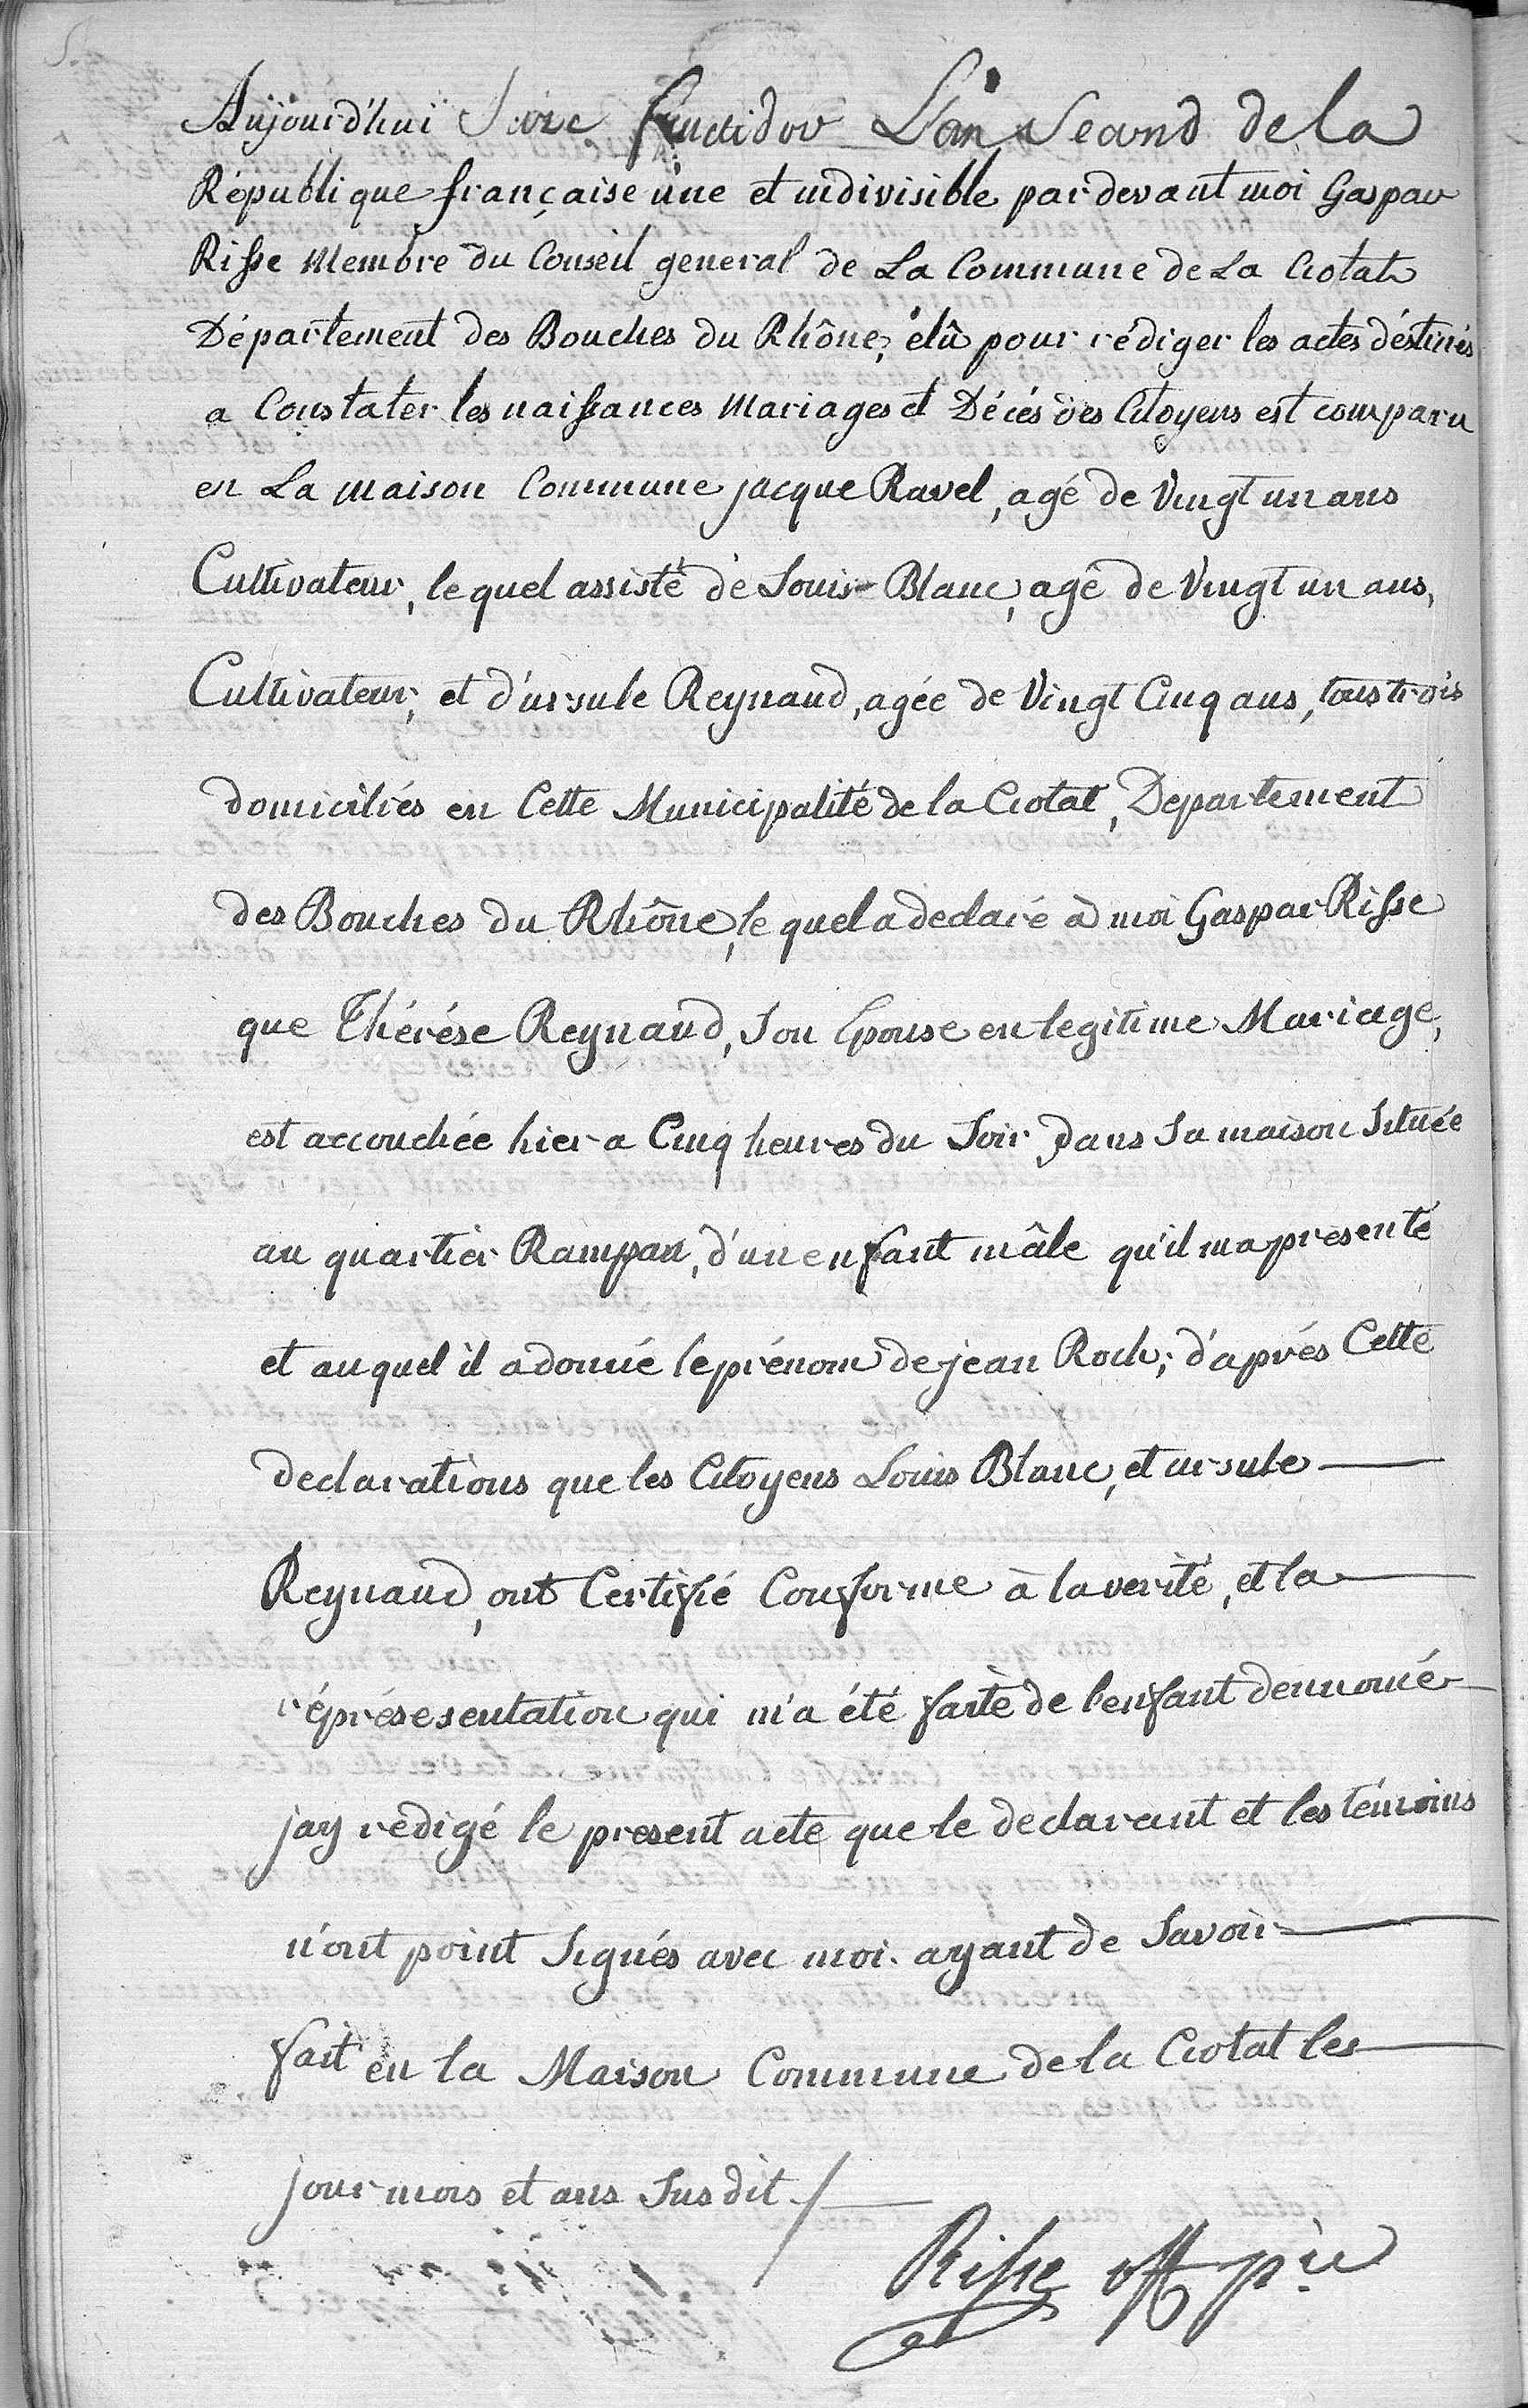 Aujourd'hui Seize fructidor L'an Second de la
République française une et indivisible par devant moi Gaspar
Risse Membre du Conseil general de La Commune de La Ciotat
Département des Bouches du Rhône, élû pour rédiger les actes déstinés
a Constater les naissances Mariages et Décés des Citoyens est comparu
en La maison Commune jacque Ravel, agé de Vingt un ans
Cultivateur, le quel assisté de Louis Blanc, agé de Vingt un ans,
Cultivateur, et d'ursule Reynaud, agée de Vingt Cinq ans, tous trois
domiciliés en Cette Municipalité de la Ciotat, Departement
des Bouches du Rhône, le quel a declaré à moi Gaspar Risse
que Thérése Reynaud, Son Epouse en legitime Mariage,
est accouchée hier a Cinq heures du Soir, dans Sa maison Située
au quartier Rampan, d'un enfant mâle qu'il ma presenté
et au quel il a donné le prénom de jean Roch; d'aprés Cette
declarations que les Citoyens Louis Blanc, et ursule
Reynaud, ont Certifié Conforme à la verité, et la
réprésesentation qui m'a été faite de l'enfant dennomé
jay redigé le present acte que le declarant et les témoins
n'ont point Signés avec moi. ayant de Savoir
fait en la Maison Commune de la Ciotat les
jour mois et ans Susdit./
Risse off p.re